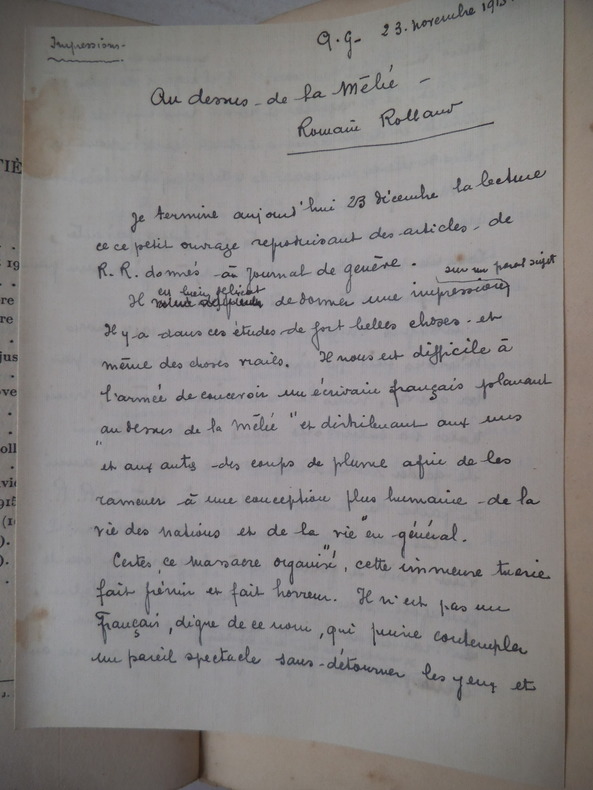 Impressions-
Q.G- 23. novembre 191
Au dessus-de la Mêlée -
Romain Rolland
Je termine aujourd'hui 23 décembre la lecture
ce ce petit ouvrage reproduisant des articles-de
R.R. donnés au Journal de genève.
sur un pareil sujet
est bien délicat
Il de donner une impression
Il y a dans ces études de fort belles choses et
même des choses vraies. Il nous est difficile à
l'armée de concevoir un écrivain français planant
"au dessus de la Mêlée" et distribuant aux uns
et aux autres des coups de plume afin de les
ramener à une conception plus humaine de la
vie des nations et de la vie en général.
Certes, ce massacre organisé, cette immense tuerie
fait frémir et fait horreur. Il n'est pas un
Français, digne de ce nom, qui puisse contempler
un pareil spectacle sans détourner les yeux et
TIÈ
19
re
re
jus
ove
oll
vie
918
(19
).
).